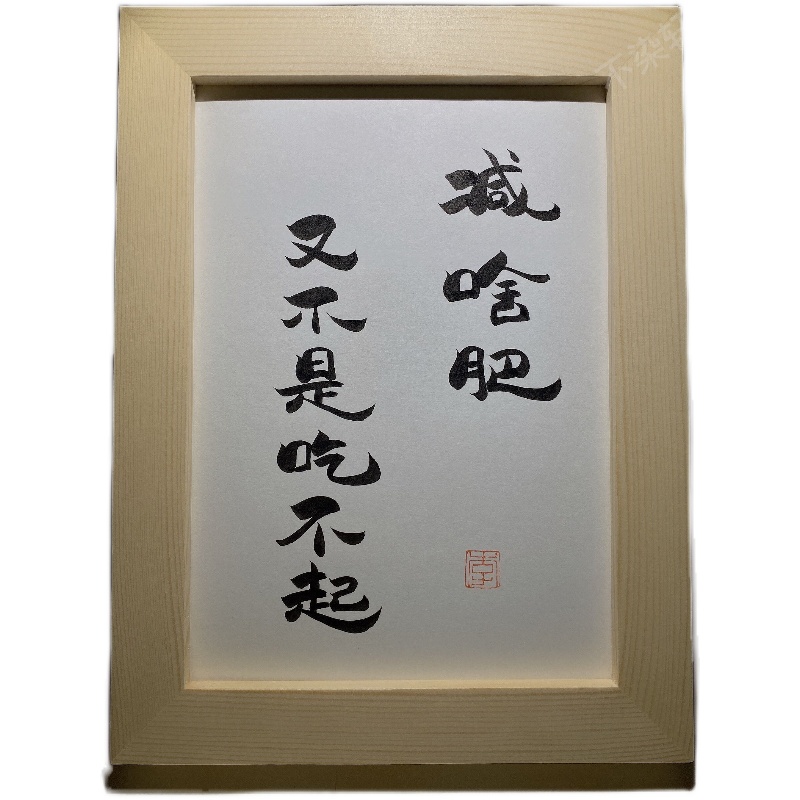 减啥肥
又不是吃不起